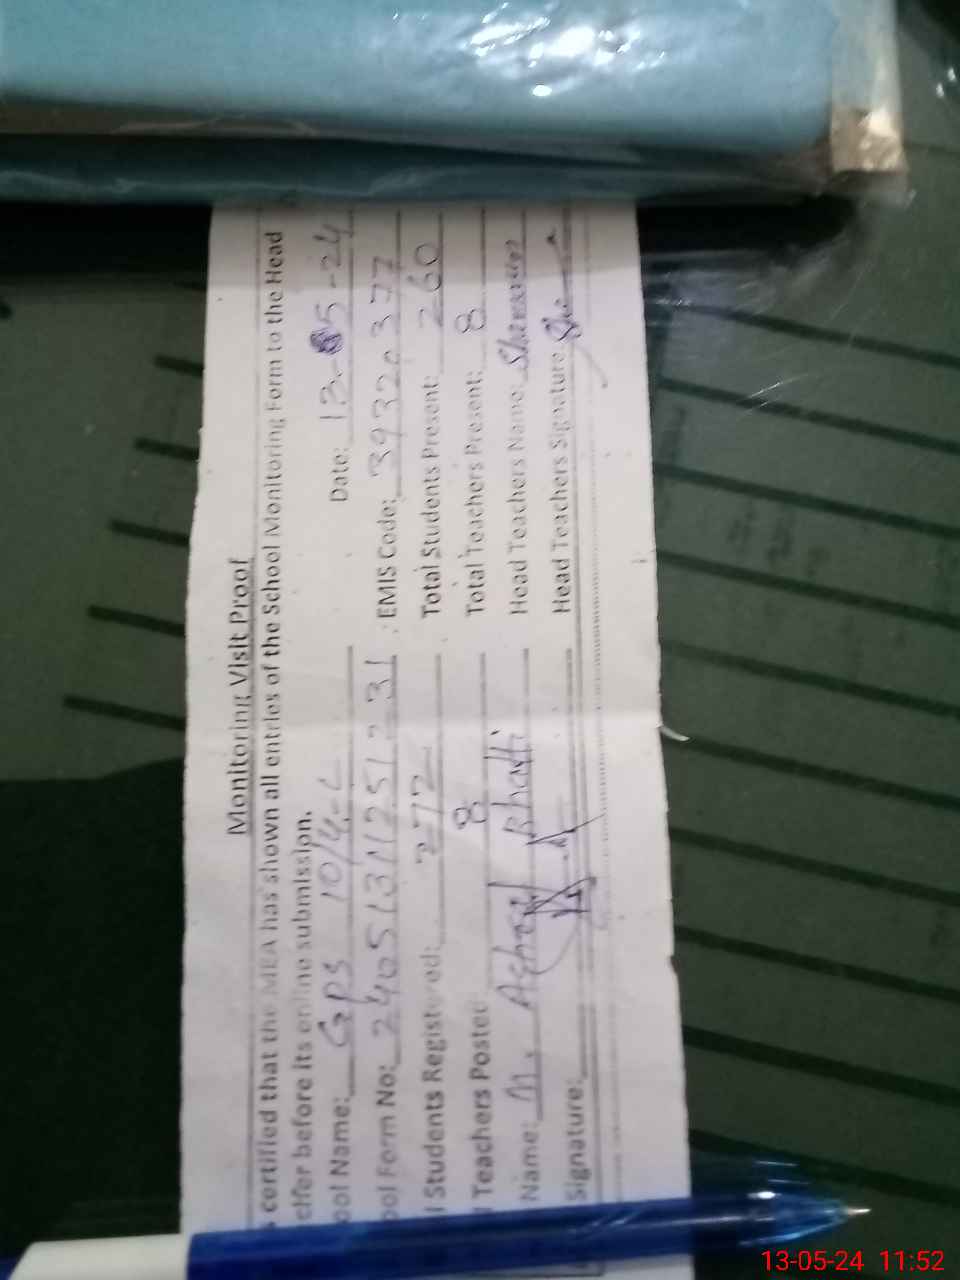 Monitoring Visit Proof
certified that the MEA has shown all entries of the School Monitoring Form to the Head
before its online submission.
ool Name: GPS 10/4-L Date: 13-5-24
ool Form No: 2405131125 1231 EMIS Code: 39320377
l Students Registered: 272 Total Students Present: 260
Teachers Posted 8 Total Teachers Present: 8
Name: M. Ashraf Bhatti Head Teachers Name:
Signature: Head Teachers Signature:
13-05-24 11:52